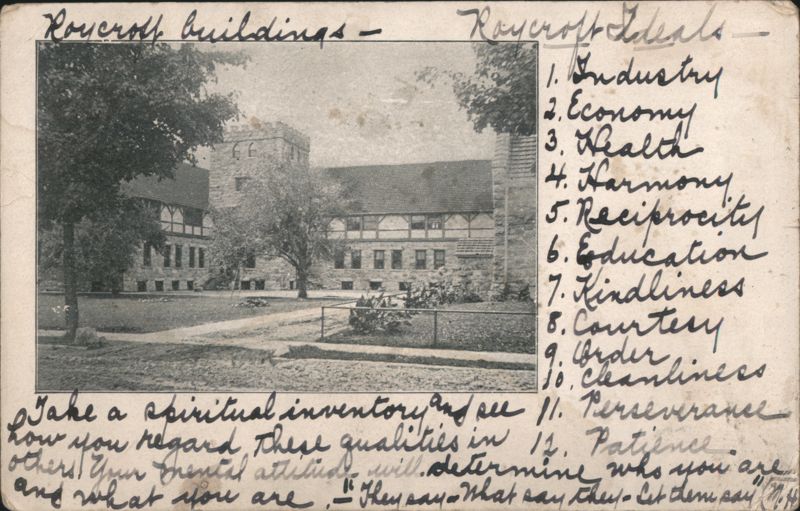 Roycroft buildings —
Roycroft Ideals —
1. Industry
2. Economy
3. Health
4. Harmony
5. Reciprocity
6. Education
7. Kindliness
8. Courtesy
9. Order
10. Cleanliness
11. Perseverance
12. Patience
Take a spiritual inventory and see
how you regard these qualities in
others. Your mental attitude will determine who you are
and what you are. — "They say – What say they – Let them say"